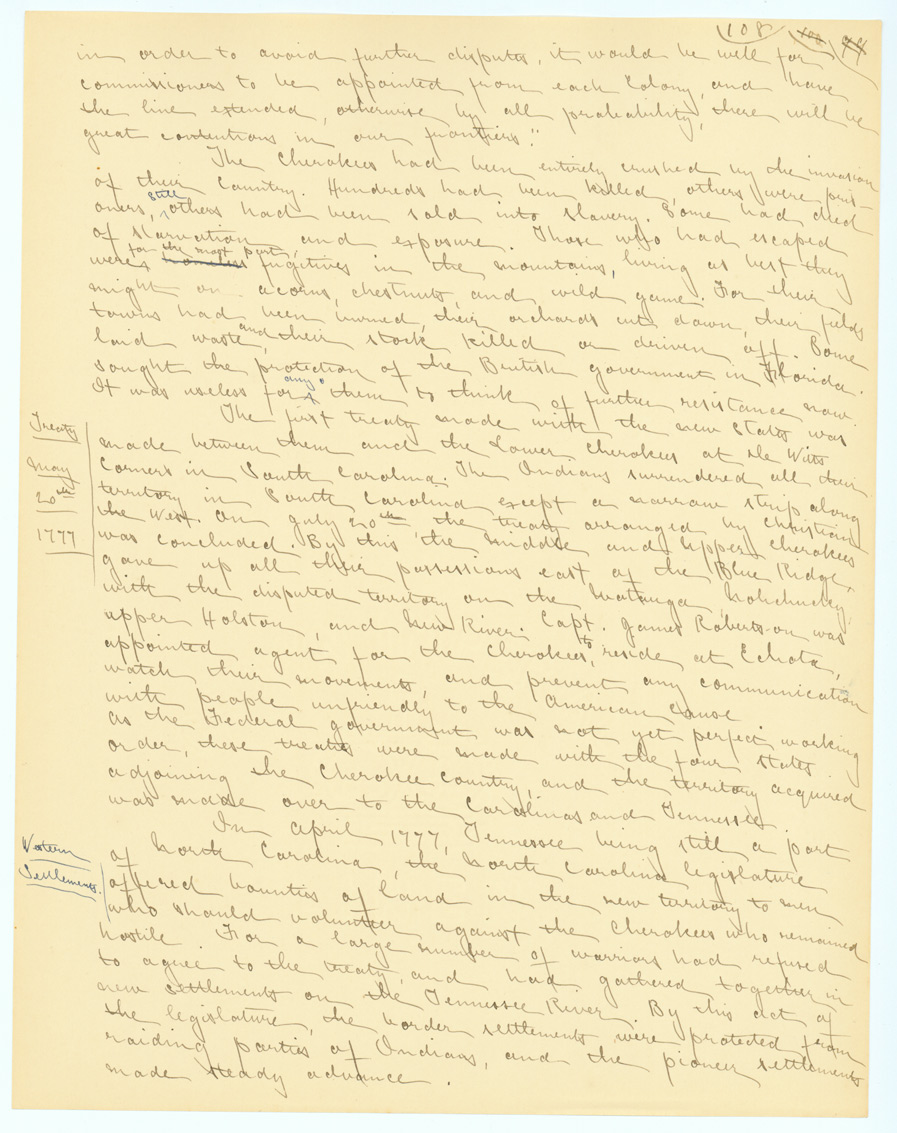 108
in order to avoid further disputes, it would be well for
commissioners to be appointed from each Colony, and have
the line extended, otherwise by all probability, there will be
great contentions in our frontiers."
The Cherokees had been entirely crushed by the invasion
of their Country. Hundreds had been killed, others were pris-
oners, still others had been sold into slavery. Some had died
of starvation and exposure. Those who had escaped
were for the most part, homeless fugitives in the mountains, living as best they
might on acorns, chestnuts, and wild game. For their
towns had been burned, their orchards cut down, their fields
laid waste, and their stock killed or driven off. Some
sought the protection of the British government in Florida.
It was useless for any of them to think of further resistance now
The first treaty made with the new states was
made between them and the Lower Cherokees at De Witts
Corners in South Carolina. The Indians surrendered all their
territory in South Carolina except a narrow strip along
the West. On July 20th the treaty arranged by Christian
was concluded. By this the Middle and Upper Cherokees
gave up all their possessions east of the Blue Ridge,
with the disputed territory on the Watauga, Nolichucky,
upper Holston, and New River. Capt. James Robertson was
appointed agent for the Cherokees, to reside at Echota,
watch their movements, and prevent any communication
with people unfriendly to the American cause
As the Federal government was not yet perfect working
order, these treaties were made with the four states
adjoining the Cherokee country, and the territory acquired
was made over to the Carolinas and Tennessee.
In April 1777, Tennessee being still a part
of North Carolina, the North Carolina legislature
offered bounties of land in the new territory to men
who should volunteer against the Cherokees who remained
hostile. For a large number of warriors had refused
to agree to the treaty, and had gathered together in
new settlements on the Tennessee River. By this act of
the legislature, the border settlements were protected from
raiding parties of Indians, and the pioneer settlements
made steady advance.
Treaty
May
20th
1777
Western
Settlements.